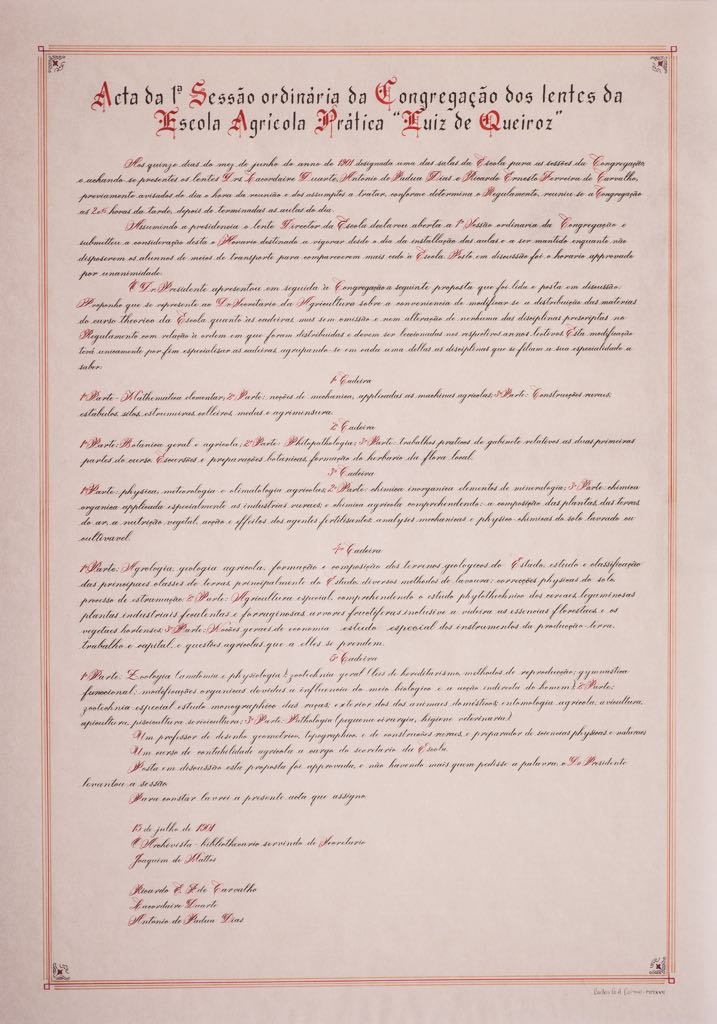 Acta da 1ª Sessão ordinária da Congregação dos lentes da
Escola Agrícola Prática "Luiz de Queiroz"
Aos quinze dias do mez de junho do anno de 1901 designada uma das salas da Escola para as sessões da Congregação,
e achando-se presentes os lentes Drs. Lacordaire Duarte, Antonio de Padua Dias e Ricardo Ernesto Ferreira de Carvalho,
previamente avisados do dia e hora da reunião e dos assumptos a tratar, conforme determina o Regulamento, reuniu-se a Congregação
as horas da tarde, depois de terminadas as aulas do dia.
Assumindo a presidencia o lente Director da Escola declarou aberta a 1ª Sessão ordinaria da Congregação e
submetteu a consideração desta o Horario destinado a vigorar desde o dia da installação das aulas e a ser mantido enquanto não
disposerem os alumnos de meios de transporte para comparecerem mais cedo à Escola. Posto em discussão foi o horario approvado
por unanimidade.
O Dr. Presidente apresentou em seguida à Congregação a seguinte proposta que foi lida e posta em discussão:
Proponho que se represente ao Dr. Secretario da Agricultura sobre a conveniencia de modificar-se a distribuição das materias
do curso theorico da Escola quanto às cadeiras, mas sem omissão e nem alteração de nenhuma das disciplinas prescriptas no
Regulamento com relação à ordem em que foram distribuidas e devem ser leccionadas nos respectivos annos lectivos. Esta modificação
terá unicamente por fim especialisar as cadeiras, agrupando-se em cada uma dellas as disciplinas que se filiam a sua especialidade a
saber:
1ª Cadeira
1ª Parte - Mathematica elementar; 2ª Parte: noções de mechanica, applicadas as machinas agricolas; 3ª Parte: Construcções ruraes,
estabulos, silos, estrumeiras, celleiros, medas e agrimensura.
2ª Cadeira
1ª Parte: Botanica geral e agricola; 2ª Parte: Phitopathologia; 3ª Parte: trabalhos praticos de gabinete relativos as duas primeiras
partes do curso. Excursões e preparações botanicas, formação do herbario da flora local.
3ª Cadeira
1ª Parte: physica, meteorologia e climatologia agricolas; 2ª Parte: chimica inorganica elementos de mineralogia; 3ª Parte: chimica
organica applicada especialmente as industrias ruraes, e chimica agricola comprehendendo: a composição das plantas, das terras,
do ar, a nutrição vegetal, acção e effeitos dos agentes fertilisantes, analyses mechanicas e physico-chimicas do solo lavrado ou
cultivavel.
4ª Cadeira
1ª Parte: Agrologia, geologia agricola, formação e composição dos terrenos geologicos do Estado, estudo e classificação
das principaes classes de terras, principalmente do Estado, diversos methodos de lavoura; correcções physicas do solo,
processo de estrumação; 2ª Parte: Agricultura especial, comprehendendo o estudo phytothechnico dos cereaes, leguminosas
plantas industriaes feculentas e forraginosas, arvores fructiferas inclusive a videira as essencias florestaes e os
vegetaes hortenses; 3ª Parte: Noções geraes de economia estudo especial dos instrumentos da producção-terra,
trabalho e capital, e questões agricolas que a elles se prendem.
5ª Cadeira
1ª Parte: Zoologia (anatomia e physiologia) zootechnia geral (leis de hereditarismo, methodos de reproducção; gymnastica
funccional; modificações organicas devidas a influencia do meio biologico e a acção indirecta do homem); 2ª Parte:
zootechnia especial estudo monographico das raças; exterior dos dos animaes domesticos; entomologia agricola, avicultura,
apicultura, piscicultura, sericicultura; 3ª Parte: Pathologia (pequena cirurgia, higiene veterinaria.)
Um professor de desenho geometrico, topographico, e de construcções ruraes, e preparador de sciencias physicas e naturaes
Um curso de contabilidade agricola a cargo do secretario da Escola.
Posta em discussão esta proposta foi approvada, e não havendo mais quem pedisse a palavra, o Dr. Presidente
levantou a sessão.
Para constar lavrei a presente acta que assigno.
15 de julho de 1901
O Archivista-bibliothecario servindo de Secretario
Joaquim de Mattos
Ricardo E. F. de Carvalho
Lacordaire Duarte
Antonio de Padua Dias